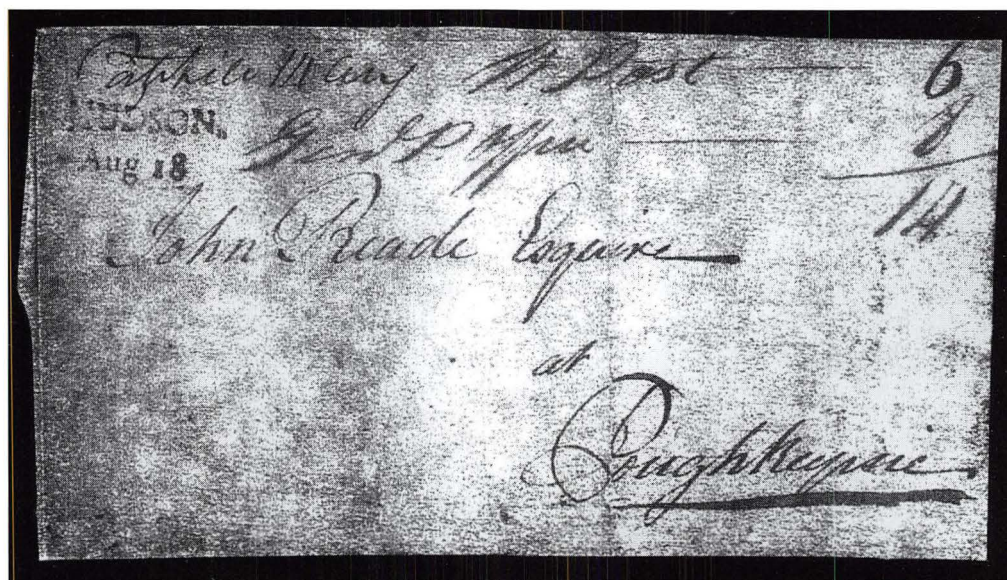 Catskill 11 Aug W Post — 6
HUDSON.
Genl P. Office — 8
Aug 18
14
John Reade Esquire
at
Poughkeepsie